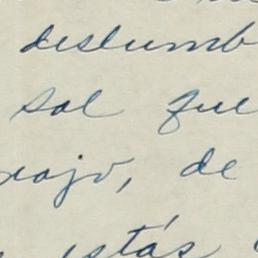 deslumb
sol que
rojo, de
estás